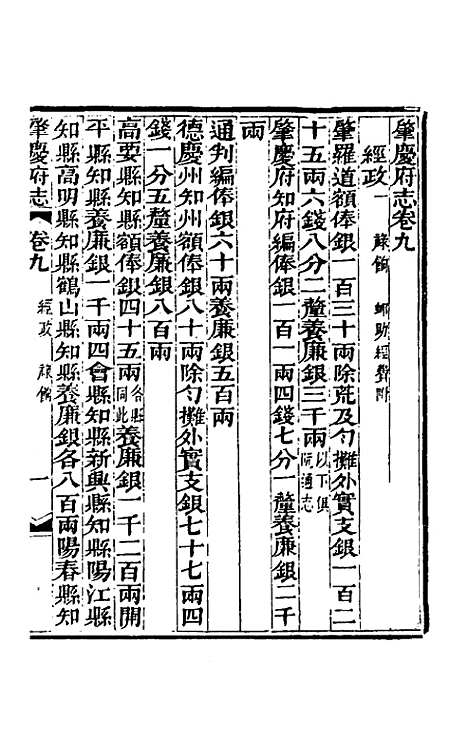 肇慶府志卷九
經政一 祿餉 郵助經費附
肇羅道額俸銀一百三十兩除荒及勻攤外實支銀一百二
十五兩六錢八分二釐養廉銀三千兩以下俱阮通志
肇慶府知府編俸銀一百一兩四錢七分一釐養廉銀二千
兩
通判編俸銀六十兩養廉銀五百兩
德慶州知州額俸銀八十兩除勻攤外實支銀七十七兩四
錢一分五釐養廉銀八百兩
高要縣知縣額俸銀四十五兩合縣同此養廉銀一千二百兩開
平縣知縣養廉銀一千兩四會縣知縣新興縣知縣陽江縣
知縣高明縣知縣鶴山縣知縣養廉銀各八百兩陽春縣知
肇慶府志 卷九 經政 祿餉 一